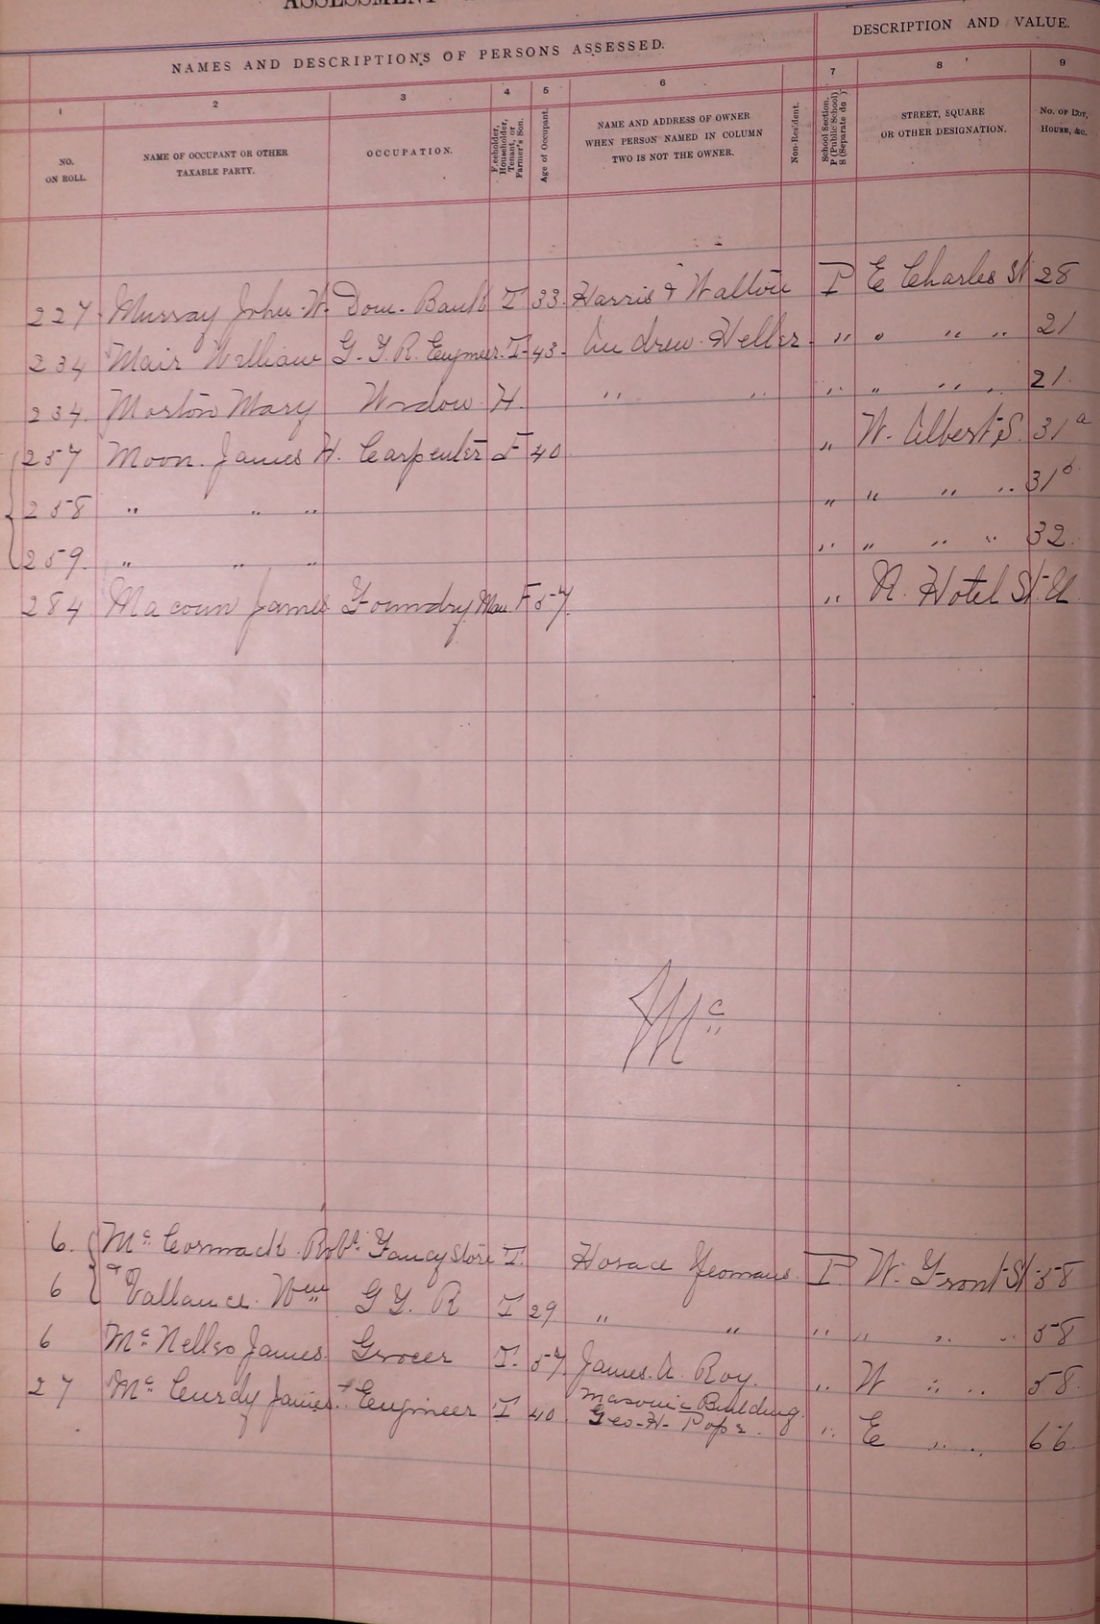 ASSESSMENT
NAMES AND DESCRIPTIONS OF PERSONS ASSESSED. DESCRIPTION AND VALUE.
1 2 3 4 5 6 7 8 9
NO. ON ROLL. NAME OF OCCUPANT OR OTHER TAXABLE PARTY. OCCUPATION. Freeholder, Householder, Tenant, or Farmer's Son. Age of Occupant. NAME AND ADDRESS OF OWNER WHEN PERSON NAMED IN COLUMN TWO IS NOT THE OWNER. Non-Resident. School Section. P (Public School) S (Separate do ) STREET, SQUARE OR OTHER DESIGNATION. No. of Lot, House, &c.
227 Murray John W. Dom. Bank T 33 Harris & Walton P E Charles St 28
234 Mair William G. T. R. Engineer T 43 Andrew Heller " " " " 21
234. Morton Mary Widow H. " " " " " " 21.
257 Moon James H. Carpenter F 40 " W. Albert S. 31a
258 " " " " " " " 31b
259. " " " " " " " 32.
284 Macoun James Foundry Man F 57 " N. Hotel St. U
Mc
6. Mc Cormack Robt. Fancy Store T. Horace Yeomans P W. Front St 58
6 & Vallance Wm G T. R T 29 " " " " " " 58
6 Mc Nellso James Grocer T. 57 James A Roy. " W " " 58
Masonic Building.
27 Mc Curdy James Engineer T 40 Geo. H. Pope. " E " " 66